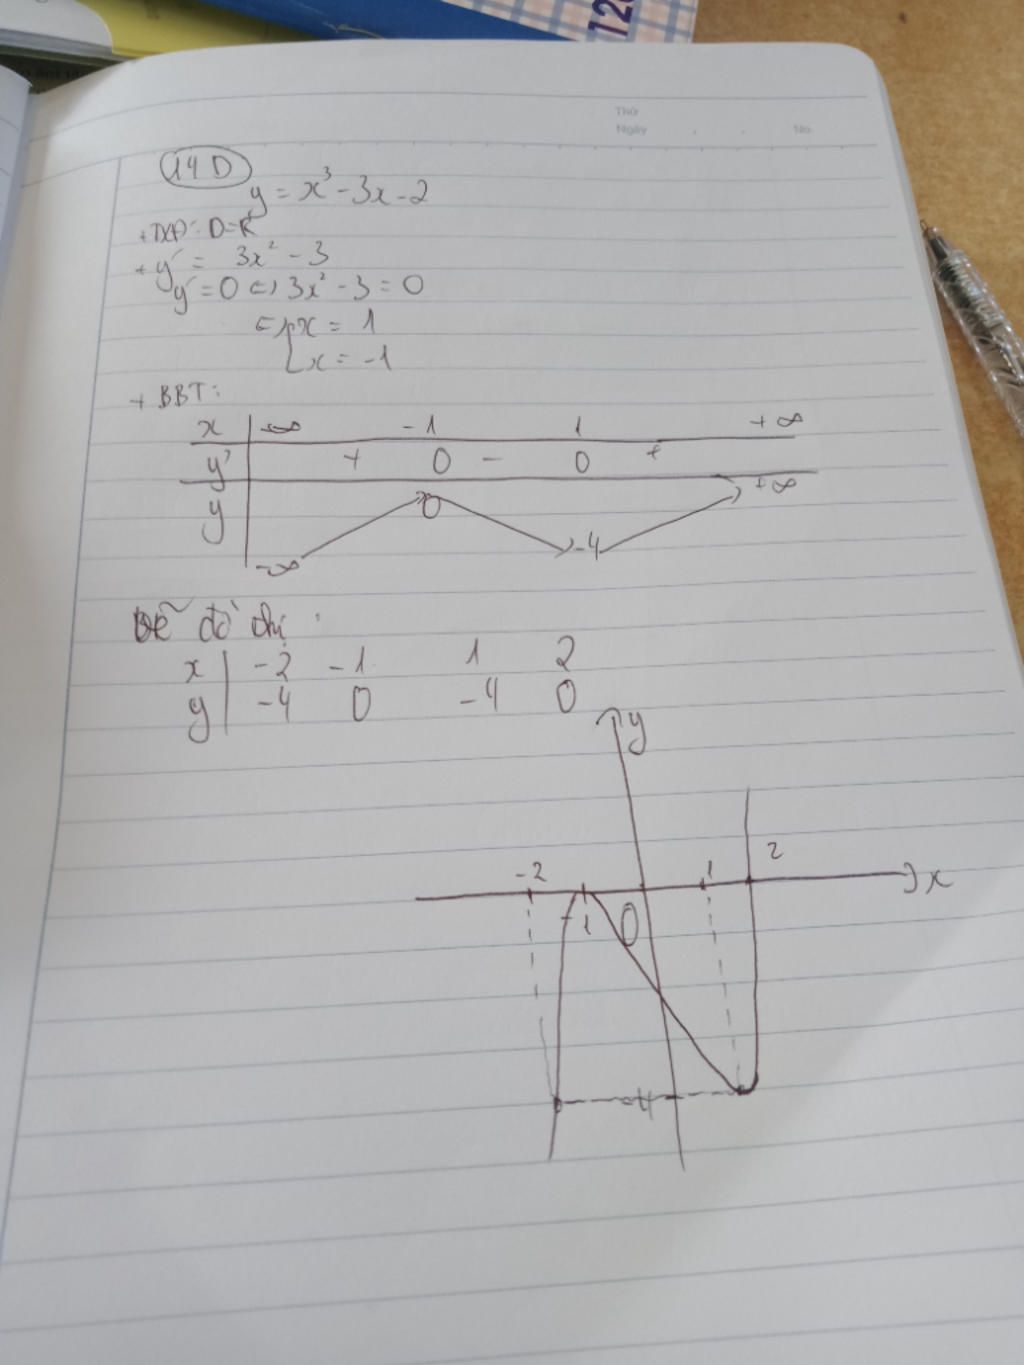 128
Thứ
Ngày . . No.
14 D
y = x³ - 3x - 2
+ TXĐ: D=R
+ y' = 3x² - 3
y' = 0 ⇔ 3x² - 3 = 0
⇔ [ x = 1
[ x = -1
+ BBT:
x | -∞ -1 1 +∞
y' | + 0 - 0 +
y | -∞ 0 -4 +∞
Vẽ đồ thị :
x | -2 -1 1 2
y | -4 0 -4 0
y
-2 1 2
x
-1 0
-4